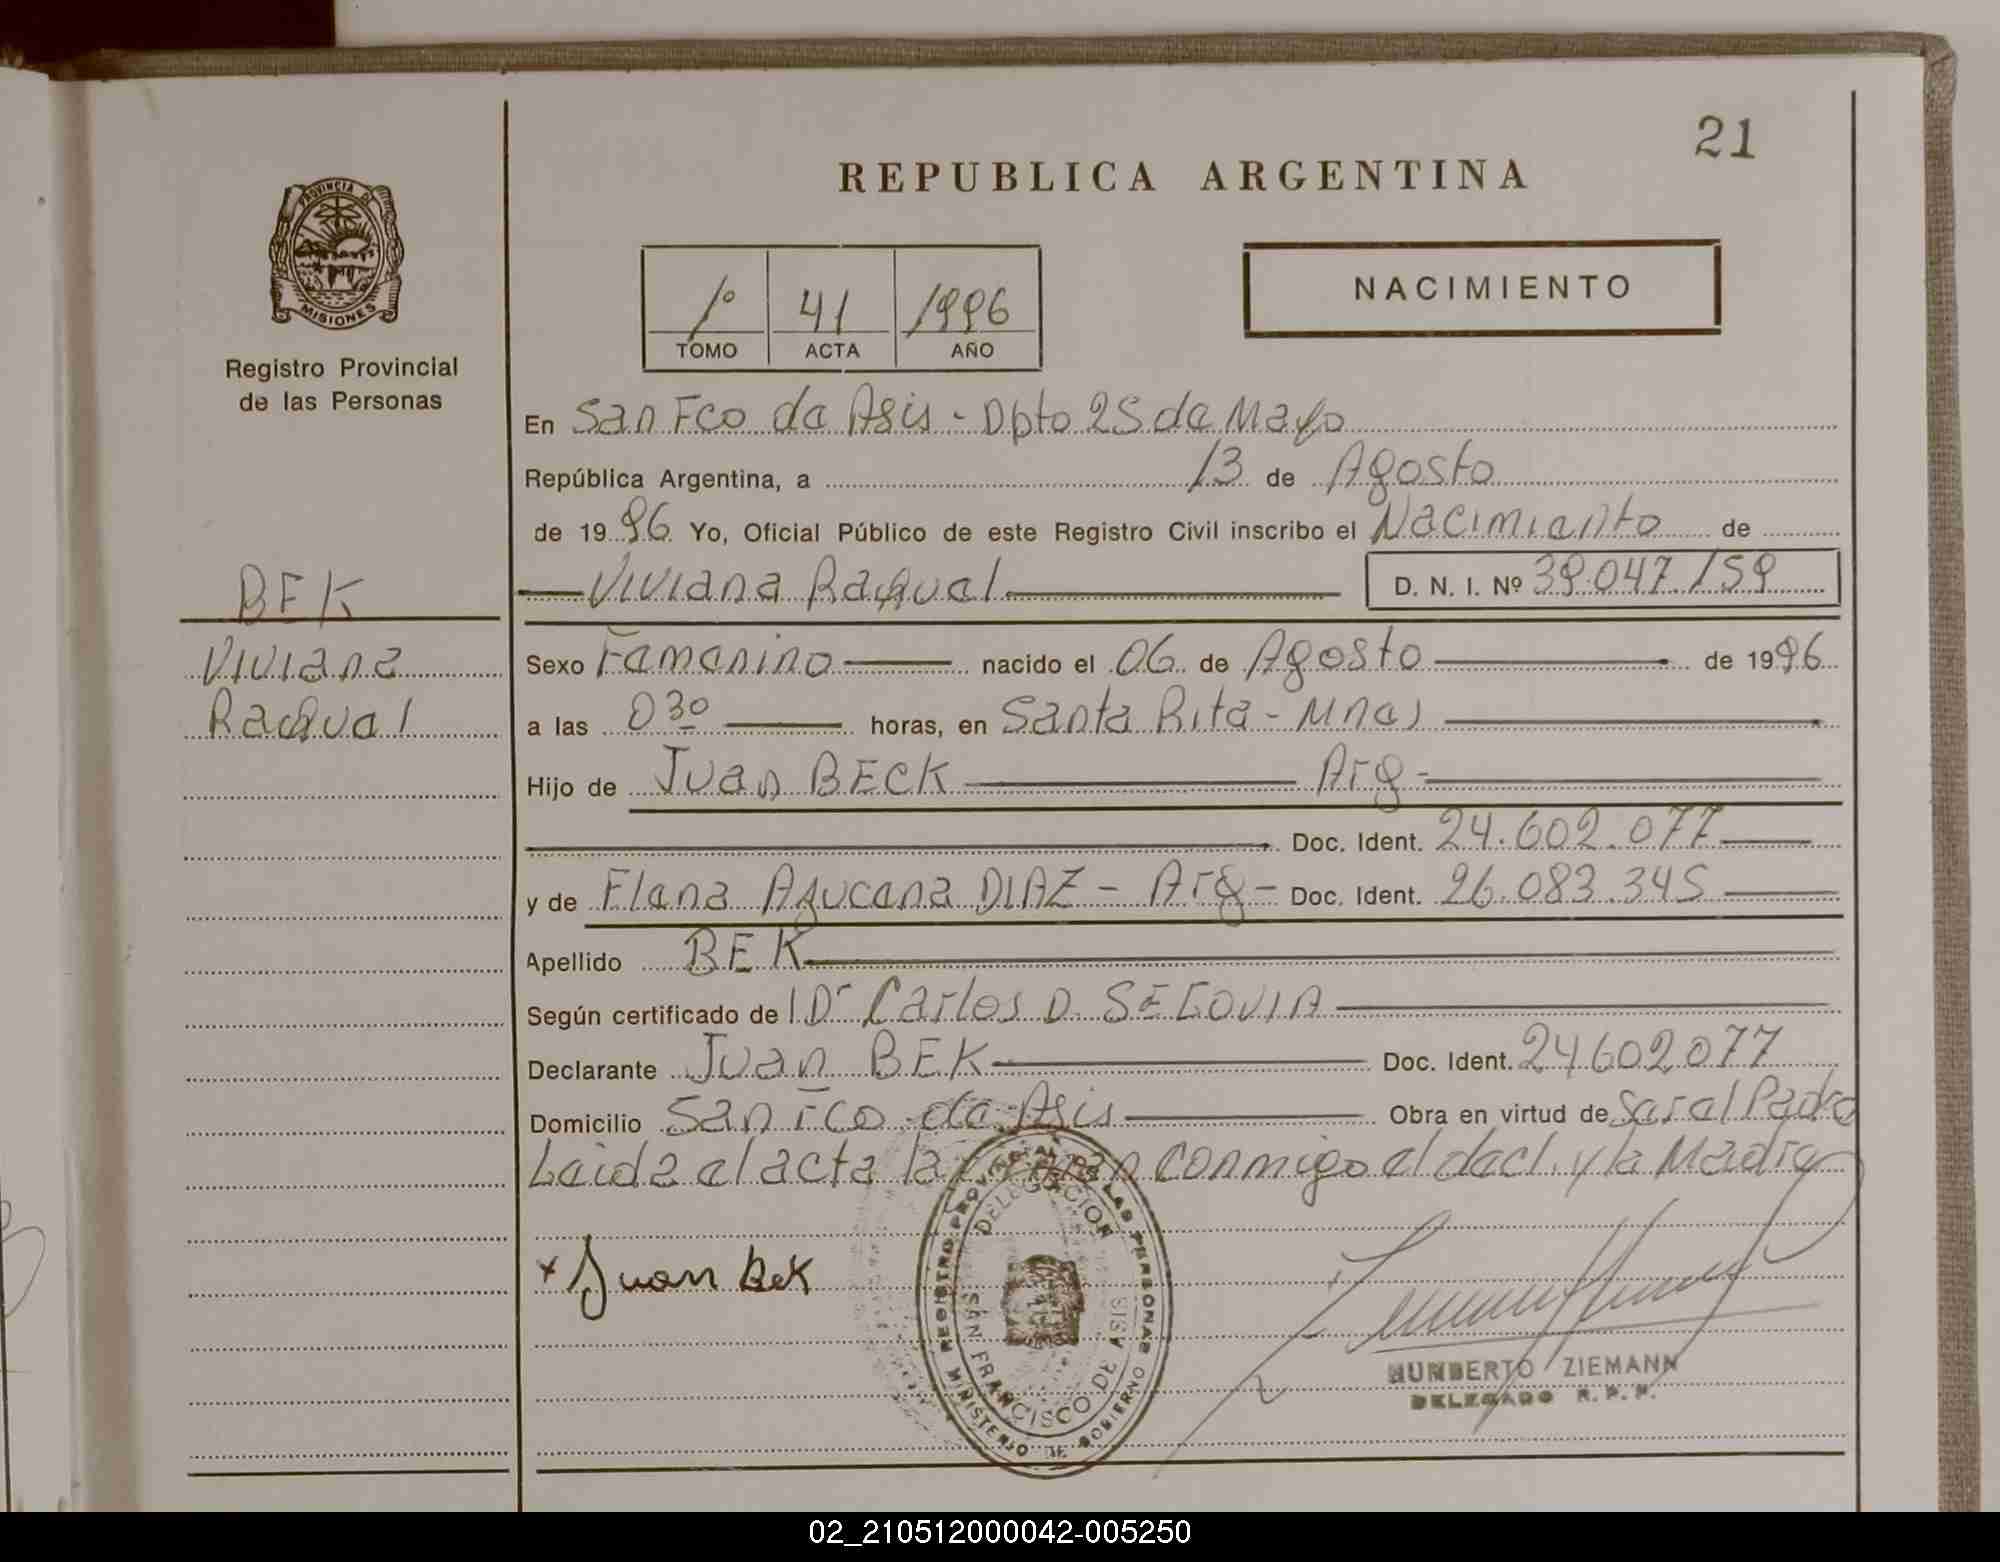 21
REPUBLICA ARGENTINA
PROVINCIA DE
MISIONES
Registro Provincial
de las Personas
1º 41 1996
TOMO ACTA AÑO
NACIMIENTO
En San Fco de Asis - Dpto 25 de Mayo
República Argentina, a 13 de Agosto
de 1996 Yo, Oficial Público de este Registro Civil inscribo el Nacimiento de
Viviana Raquel D. N. I. Nº 39.047.159
BEK
Viviana
Raquel
Sexo Femenino nacido el 06 de Agosto de 1996
a las 0 30 horas, en Santa Rita - Mnes
Hijo de Juan BECK Arg -
Doc. Ident. 24.602.077
y de Elena Azucena DIAZ - Arg - Doc. Ident. 26.083.345
Apellido BEK
Según certificado de Dr Carlos D. SEGOVIA
Declarante Juan BEK Doc. Ident. 24602077
Domicilio San Fco de Asis Obra en virtud de Ser el Padre
Leida el acta la firman conmigo el decl. y la Madre
x Juan Bek
REGISTRO PROVINCIAL DE LAS PERSONAS
DELEGACION
SAN FRANCISCO DE ASIS
MINISTERIO DE GOBIERNO
HUMBERTO ZIEMANN
DELEGADO R. P. P.
02_210512000042-005250